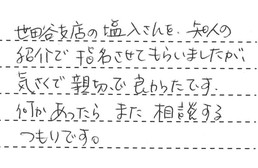 世田谷支店の塩入さんを、知人の
紹介で指名させてもらいましたが、
気さくで親切で良かったです。
何かあったら また 相談する
つもりです。